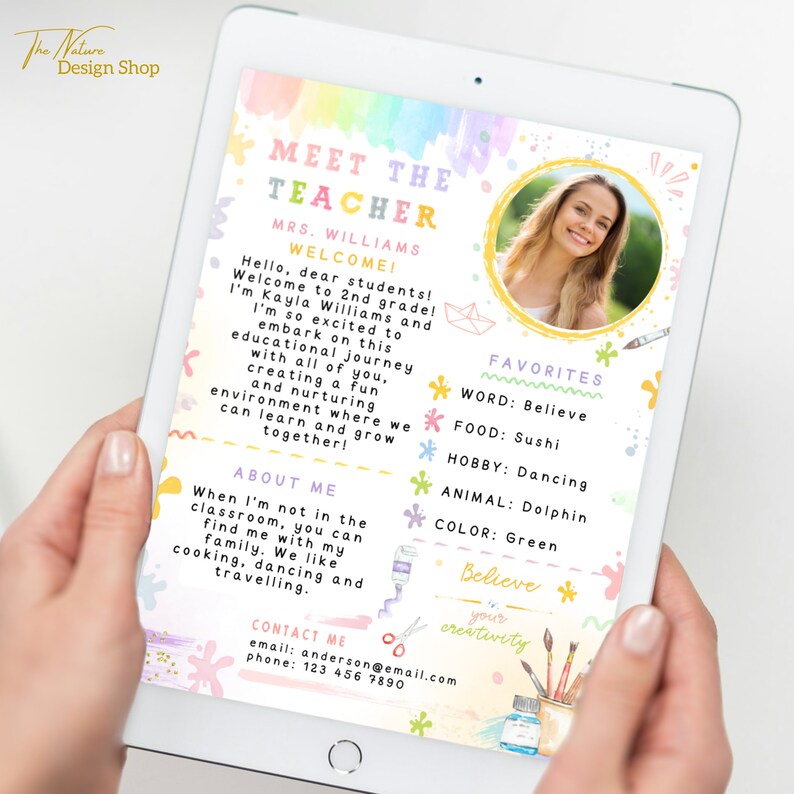 The Nature
Design Shop
MEET THE
TEACHER
MRS. WILLIAMS
WELCOME!
Hello, dear students!
Welcome to 2nd grade!
I'm Kayla Williams and
I'm so excited to
embark on this
educational journey
with all of you,
creating a fun
and nurturing
environment where we
can learn and grow
together!
ABOUT ME
When I'm not in the
classroom, you can
find me with my
family. We like
cooking, dancing and
travelling.
CONTACT ME
email: anderson@email.com
phone: 123 456 7890
FAVORITES
WORD: Believe
FOOD: Sushi
HOBBY: Dancing
ANIMAL: Dolphin
COLOR: Green
Believe
in
your
creativity